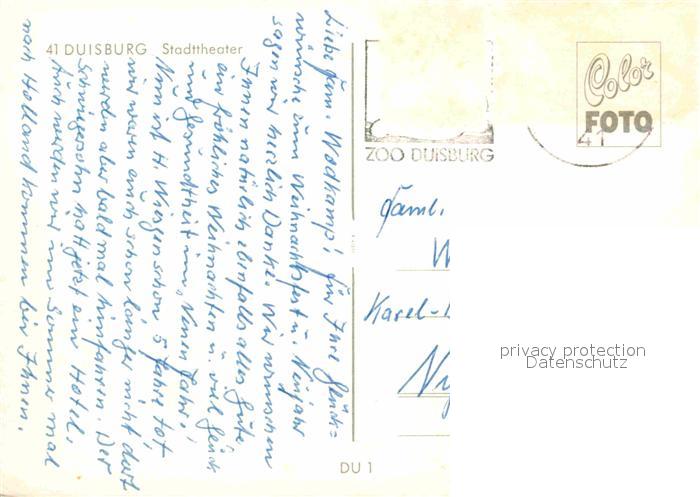 41 DUISBURG Stadttheater
Liebe Fam. Wodkamp! Für Ihre Glück=
wünsche zum Weihnachtsfest u. Neujahr
sagen wir herzlich Danke. Wir wünschen
Ihnen natürlich ebenfalls alles Gute
ein fröhliches Weihnachten u. viel Glück
und Gesundheit im „Neuen Jahr".
Nun ist H. schon 5 Jahre tot,
wir waren auch schon länger nicht dort
werden aber bald mal hinfahren. Der
Schwiegersohn hat jetzt ein Hotel.
Auch werden wir im Sommer mal
nach Holland kommen bei Ihnen.
ZOO DUISBURG
41
Color
FOTO
Faml.
W
Karel-
Ny
privacy protection
Datenschutz
DU 1